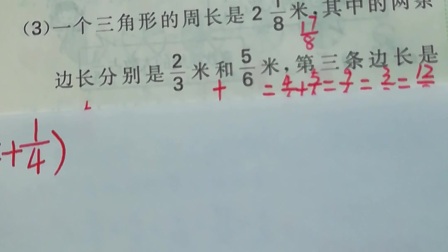 (3)一个三角形的周长是 2 1/8 米,其中的两条
17/8
边长分别是 2/3 米和 5/6 米,第三条边长是
+ = 4 + 5 = 9 = 3 = 12
+ 1/4 )